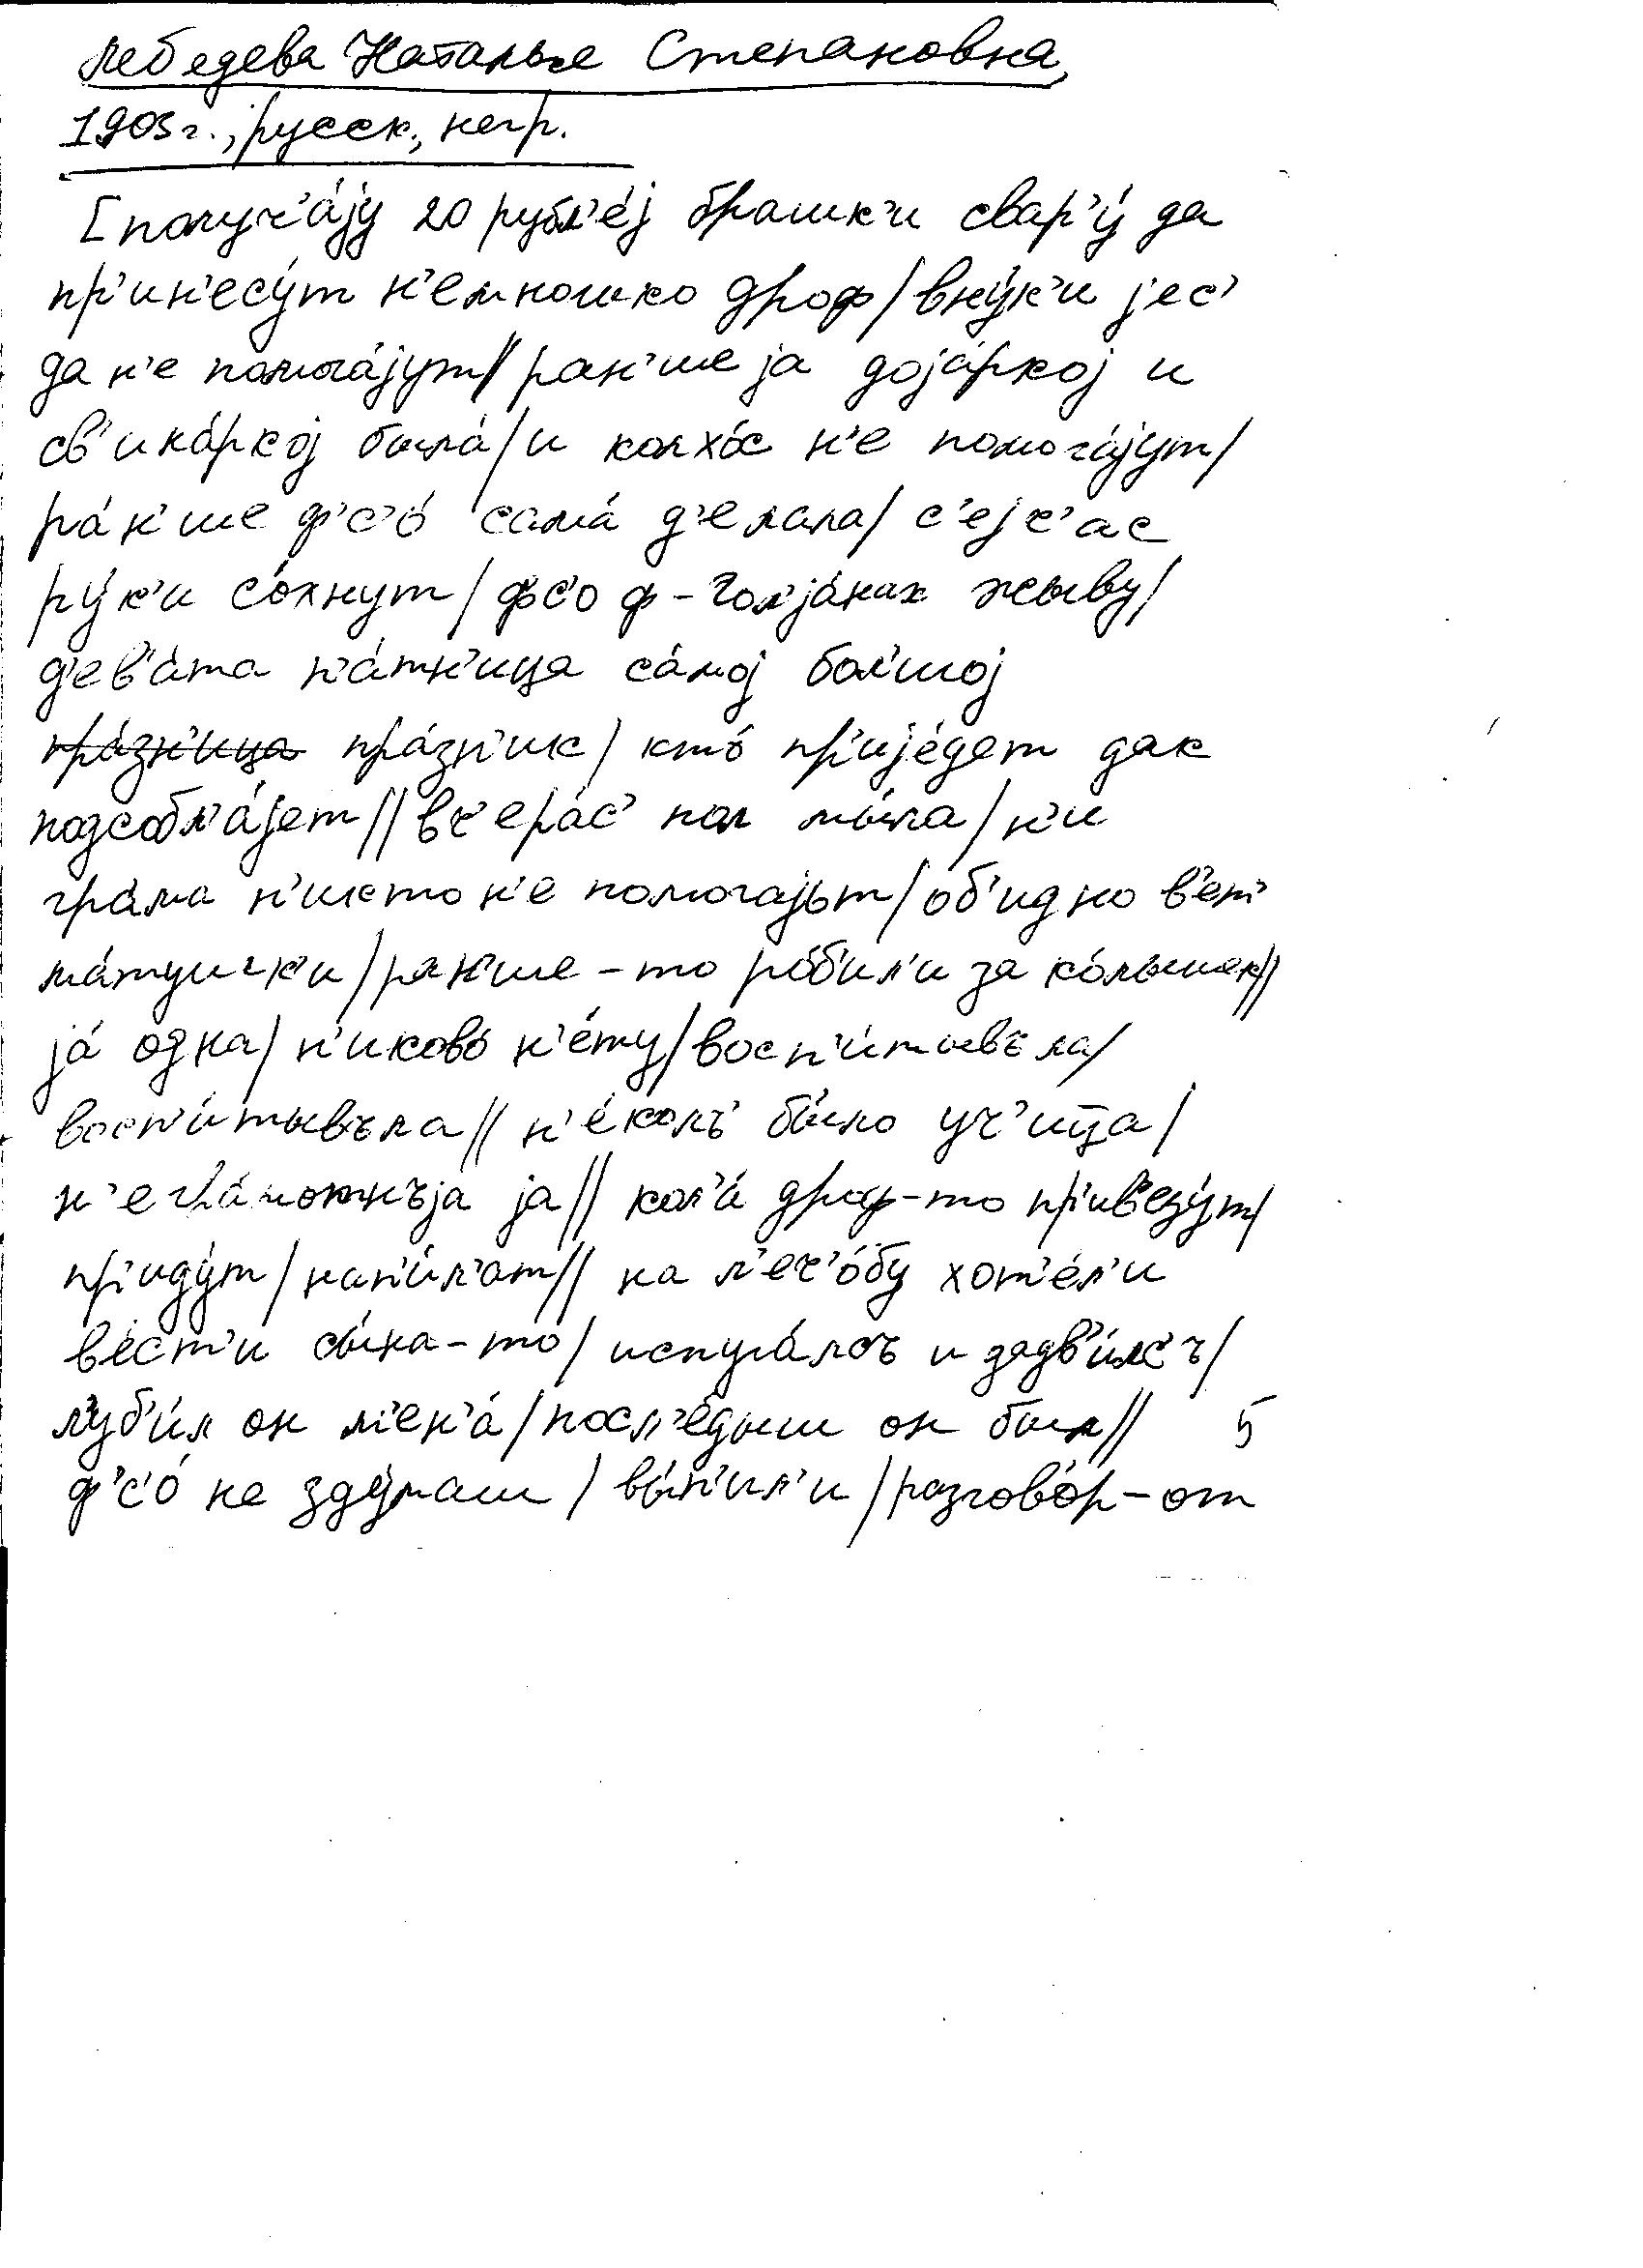 Лебедева Наталья Степановна,
1903 г., русск., негр.
[получ'а́jу 20 рубл'е́j брашк'и свар'у́ да
пр'ин'есу́т н'емношко дроф/вну́к'и jес'
да н'е помога́jут// ран'ше jа доjа́ркоj и
св'ина́ркоj была́/и колхо́с н'е помога́jут/
ра́н'ше ф'с'о́ сама́ д'елала/ с'еjч'ас
ру́к'и со́хнут/ фс'о ф-Гол'jа́нах жыву/
д'ев'а́та п'а́тн'ица са́моj бол'шоj
пра́зн'ица пра́зн'ик/ кто́ пр'иjе́дет дак
подсобл'а́jет//вч'ера́с' пол мы́ла/н'и
гра́ма н'икто н'е помогаjьт/об'идно в'ет'
ма́тушк'и/ран'ше-то ро́б'ил'и за ко́лышек//
jа́ одна/ н'иково́ н'е́ту/восп'и́тывъла/
восп'и́тывъла// н'е́колъ' бы́ло уч'ица/
н'егра́мотнъjа jа// кол'и́ дроф-то пр'ив'езу́т/
пр'иду́т/нап'и́л'ат// на л'еч'о́бу хот'е́л'и
в'ест'и сы́на-то/ испуга́лсъ и задв'и́лс'ъ/
л'уб'и́л он м'ен'а́/посл'е́дыш он был// 5
ф'с'о́ не зду́маш / вы́п'ил'и /разгово́р-от